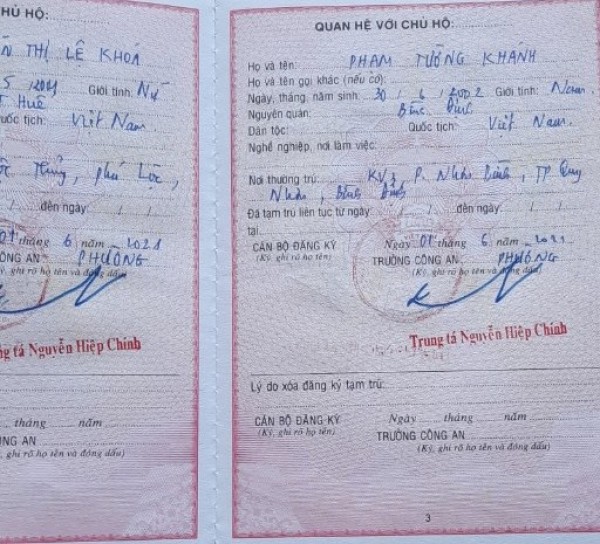 HỦ HỘ:
N THỊ LÊ KHOÁ
5 /2021 Giới tính: Nữ
T Huế
uốc tịch: Việt Nam
Thủy, Phú Lộc,
/ / đến ngày: / /
01 tháng 6 năm 2021
ÔNG AN PHƯỜNG
ý, ghi rõ họ tên và đóng dấu)
ng tá Nguyễn Hiệp Chính
tháng năm
NG AN
, ghi rõ họ tên và đóng dấu)
QUAN HỆ VỚI CHỦ HỘ:
Họ và tên: PHẠM TƯỜNG KHÁNH
Họ và tên gọi khác (nếu có):
Ngày, tháng, năm sinh: 30 / 6 / 2002 Giới tính: Nam
Nguyên quán: Bình Định
Dân tộc: Quốc tịch: Việt Nam
Nghề nghiệp, nơi làm việc:
Nơi thường trú: P. Nhơn Bình, TP Quy
Nhơn, Bình Định
Đã tạm trú liên tục từ ngày: / / đến ngày: / /
tại
CÁN BỘ ĐĂNG KÝ Ngày 01 tháng 6 năm 2021
(Ký, ghi rõ họ tên) TRƯỞNG CÔNG AN PHƯỜNG
(Ký, ghi rõ họ tên và đóng dấu)
Trung tá Nguyễn Hiệp Chính
Lý do xóa đăng ký tạm trú:
CÁN BỘ ĐĂNG KÝ Ngày tháng năm
(Ký, ghi rõ họ tên) TRƯỞNG CÔNG AN
(Ký, ghi rõ họ tên và đóng dấu)
3